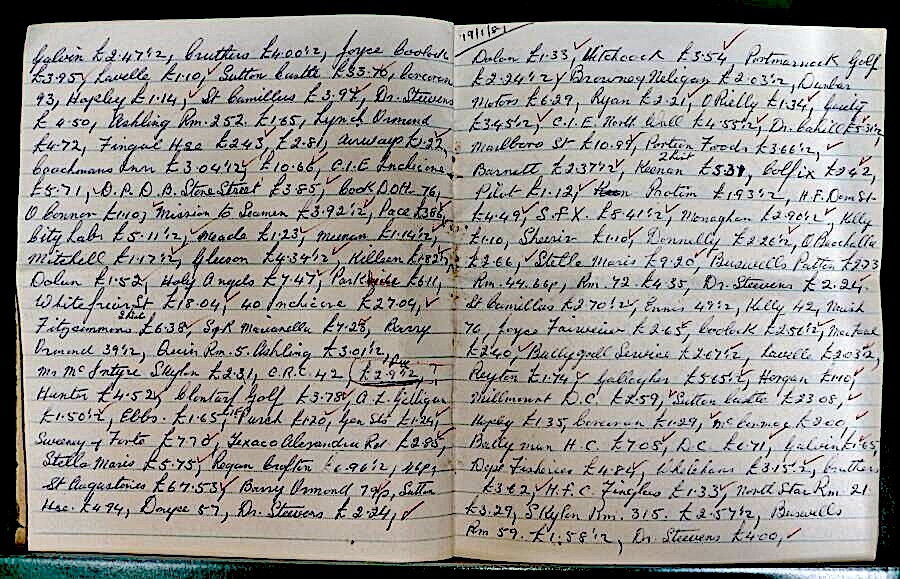 Galvin £2.47½, Cruthers £4.00½, Joyce Coolock
£3.95, Lavelle £1.10, Sutton Castle £33.70, Corcoran
93, Hapley £1.14, St Camillus £3.97, Dr. Steevens
£4.50, Ashling Rm. 252 £1.65, Lynch Ormond
£4.72, Fingal Hse £2.43, £2.81, Airways £1.22,
Coachmans Inn £3.04½, £10.66, C.I.E Inchicore
£5.71, D.P.D.B. Store Street £3.85, Cook Dott 76,
O Connor £1.40, Mission to Seamen £3.92½, Pace £3.86,
City Labs £5.11½, Meade £1.23, Meenan £1.14½,
Mitchell £1.17½, Gleeson £4.34½, Killeen £1.82½,
Dolan £1.52, Holy Angels £7.47, Park £6.11,
Whitefriar St £18.04, 40 Inchicore £27.04,
Fitzsimmons 2 Hist £6.38, S&R Marianella £7.23, Barry
Ormond 39½, Quin Rm. 5. Ashling £3.01½,
Mr McIntyre Skylon £2.31, C.R.C. 42, £2.9½,
Hunter £4.52, Clontarf Golf £3.78, A.L. Gilligan
£1.50½, Ebbs. £1.65, Tursh £1.20, Gen Sts £1.24,
Sweeney Forte £7.70, Texaco Alexandra Rd £2.85,
Stella Maris £5.75, Regan Crofton £6.96½, 46p,
St Augustines £67.53, Barry Ormond 79p, Sutton
Hse. £4.94, Dowse 57, Dr. Steevens £2.24,
19/1/81
Dolan £1.33, Hitchcock £3.54, Portmarnock Golf
£2.24½, Browney Neligan £2.03½, Dunbar
Motors £6.29, Ryan £2.21, O Reilly £1.34, Guity
£3.45½, C.I.E. North Wall £4.55½, Dr. Cahill £5.31½,
Marlboro St £10.59, Portion Foods £3.66½,
Barnett £2.37½, Keenan 2 Hist £5.31, Colfix £2.42,
Pilot £1.12, Protim £1.93½, H.F. Dom St.
£4.49, S.F.X. £5.41½, Monaghan £2.90½, Kelly
£1.10, Sheerin £1.10, Donnelly £2.26½, O Buachalla
£2.66, Stella Maris £9.20, Buswells Patten £2.73
Rm. 44. 66p, Rm. 72. £4.35, Dr. Steevens £2.24.
St Camillus £2.70½, Ennis 49½, Kelly 42, Marsh
76, Joyce Fairweier £2.65, Coolock £2.56½, MacKeal
£2.40, Ballygall Service £2.67½, Lavelle £2.03½,
Peyton £1.74, Gallagher £5.65½, Horgan £1.10,
Millmount D.C. £2.59, Sutton Castle £23.08,
Hapley £1.35, Corcoran £1.29, McKenna £2.00,
Ballymun H.C. £7.05, D.C. £6.71, Galvin £1.65,
Dept Fisheries £4.84, Whitehaus £3.15½, Cruthers
£3.62, H.F.C. Finglas £1.33, North Star Rm. 21.
£3.29, Skylon Rm. 315. £2.57½, Buswells
Rm 59. £1.58½, Dr. Steevens £4.00,